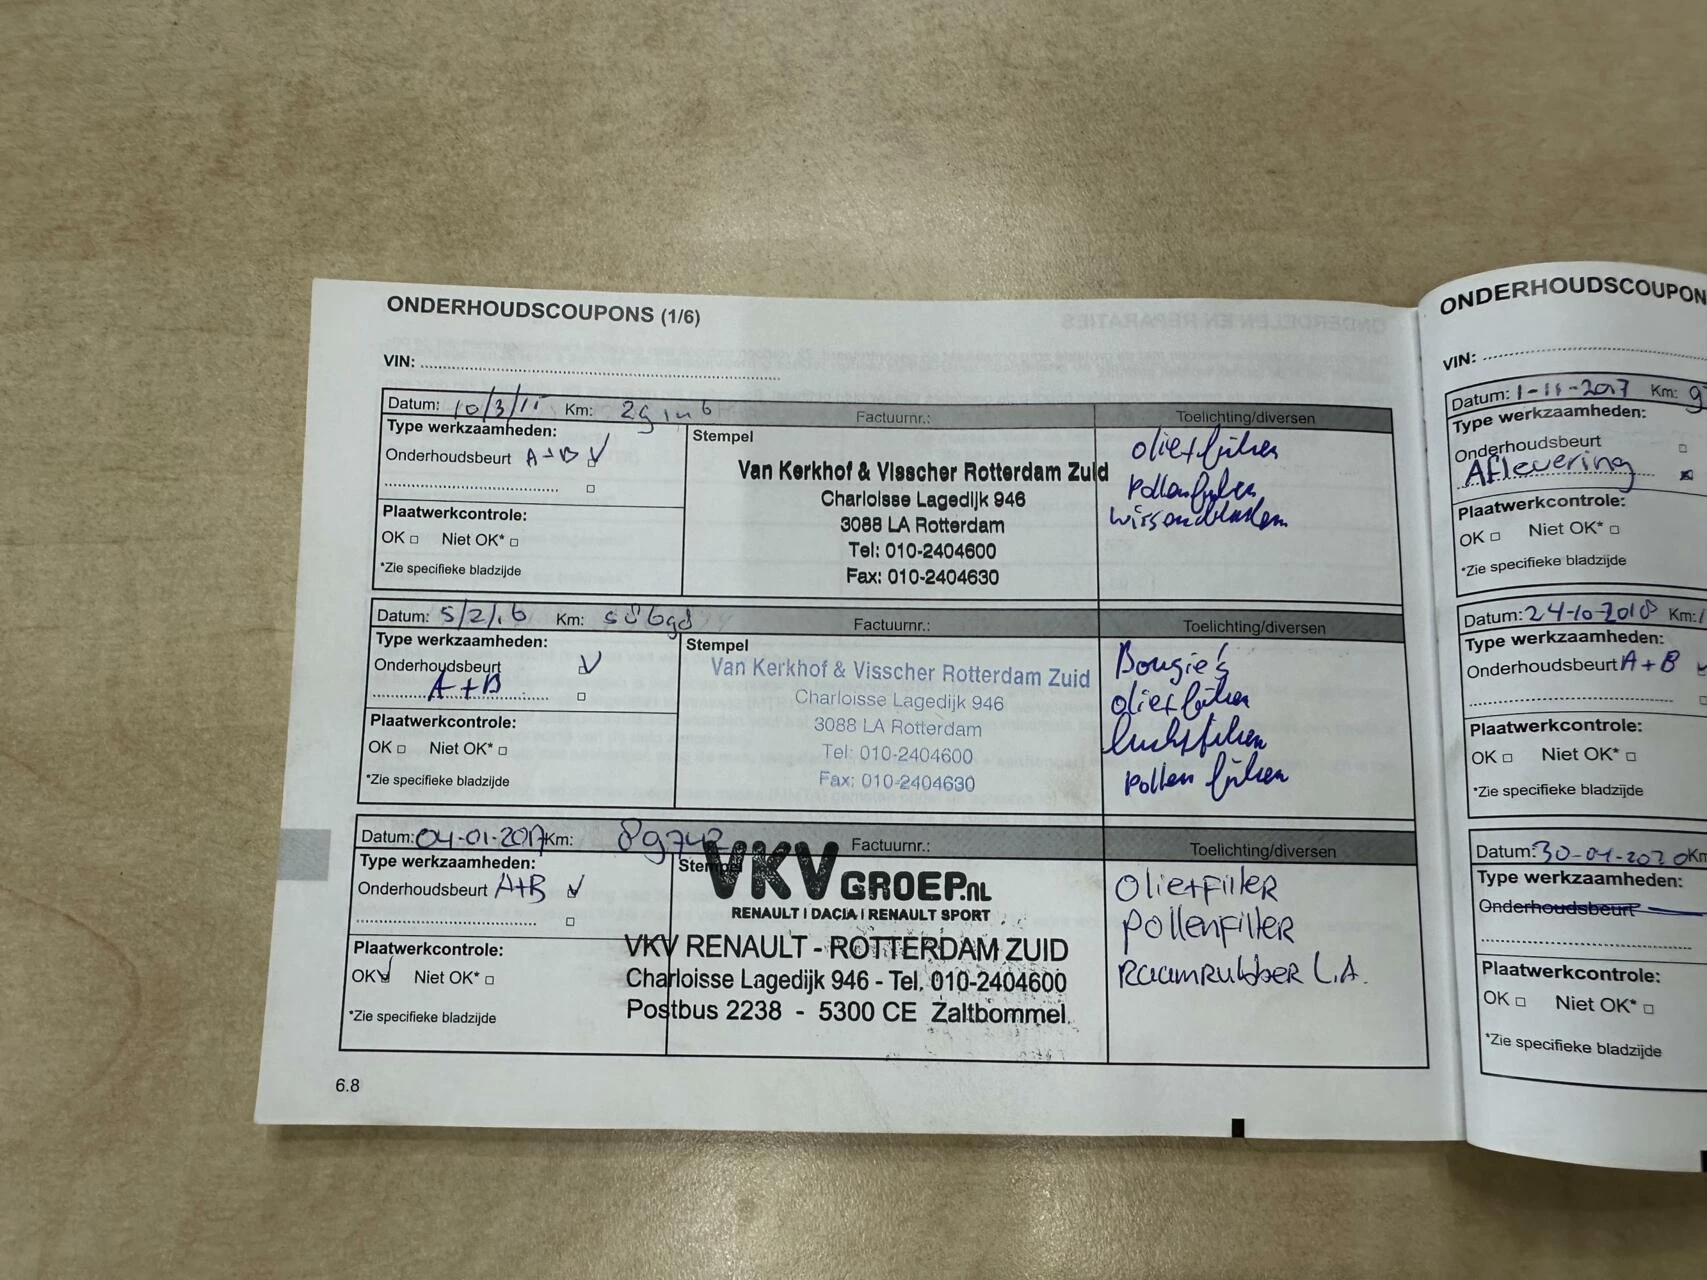 ONDERHOUDSCOUPONS (1/6)
VIN:
Datum: 10/3/15 Km: Factuurnr.: Toelichting/diversen
Type werkzaamheden:
Onderhoudsbeurt A+B
Plaatwerkcontrole:
OK Niet OK*
*Zie specifieke bladzijde
Stempel
Van Kerkhof & Visscher Rotterdam Zuid
Charloisse Lagedijk 946
3088 LA Rotterdam
Tel: 010-2404600
Fax: 010-2404630
Datum: 5/2/16 Km: Factuurnr.: Toelichting/diversen
Type werkzaamheden:
Onderhoudsbeurt
A+B
Plaatwerkcontrole:
OK Niet OK*
*Zie specifieke bladzijde
Stempel
Van Kerkhof & Visscher Rotterdam Zuid
Charloisse Lagedijk 946
3088 LA Rotterdam
Tel: 010-2404600
Fax: 010-2404630
Bougie's
Datum: 04-01-2017 Km: 89742 Factuurnr.: Toelichting/diversen
Type werkzaamheden:
Onderhoudsbeurt A+B
Plaatwerkcontrole:
OK Niet OK*
*Zie specifieke bladzijde
Stempel
VKV GROEP.NL
RENAULT | DACIA | RENAULT SPORT
VKV RENAULT - ROTTERDAM ZUID
Charloisse Lagedijk 946 - Tel. 010-2404600
Postbus 2238 - 5300 CE Zaltbommel
Olie+Filter
Pollenfilter
Raamrubber L.A.
6.8
ONDERHOUDSCOUPON
VIN:
Datum: 1-11-2017 Km:
Type werkzaamheden:
Onderhoudsbeurt
Aflevering
Plaatwerkcontrole:
OK Niet OK*
*Zie specifieke bladzijde
Datum: 24-10-2018 Km:
Type werkzaamheden:
Onderhoudsbeurt A+B
Plaatwerkcontrole:
OK Niet OK*
*Zie specifieke bladzijde
Datum: Km
Type werkzaamheden:
Onderhoudsbeurt
Plaatwerkcontrole:
OK Niet OK*
*Zie specifieke bladzijde